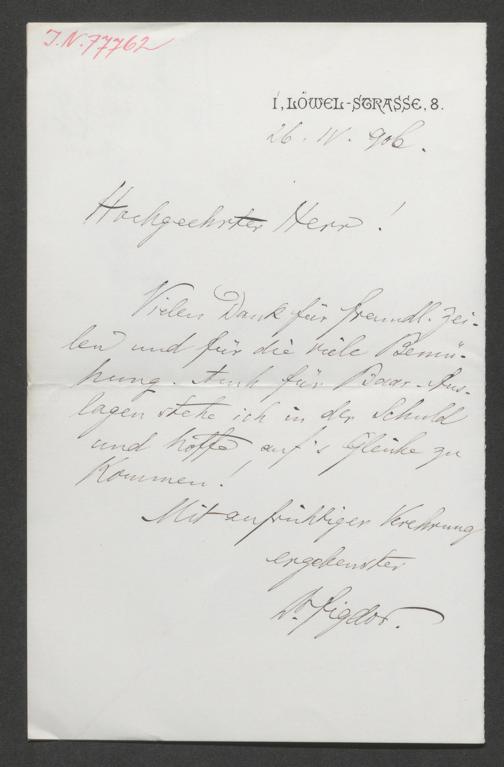 I.N. 77762
I, LÖWEL-STRASSE, 8.
26. IV. 906.
Hochgeehrter Herr!
Vielen Dank für freundl. Zei-
len und für die viele Bemü-
hung. Auch für Baar-Aus-
lagen stehe ich in der Schuld
und hoffe auf's Gleiche zu
Kommen!
Mit aufrichtiger Verehrung
ergebenster
Dr. Figdor.